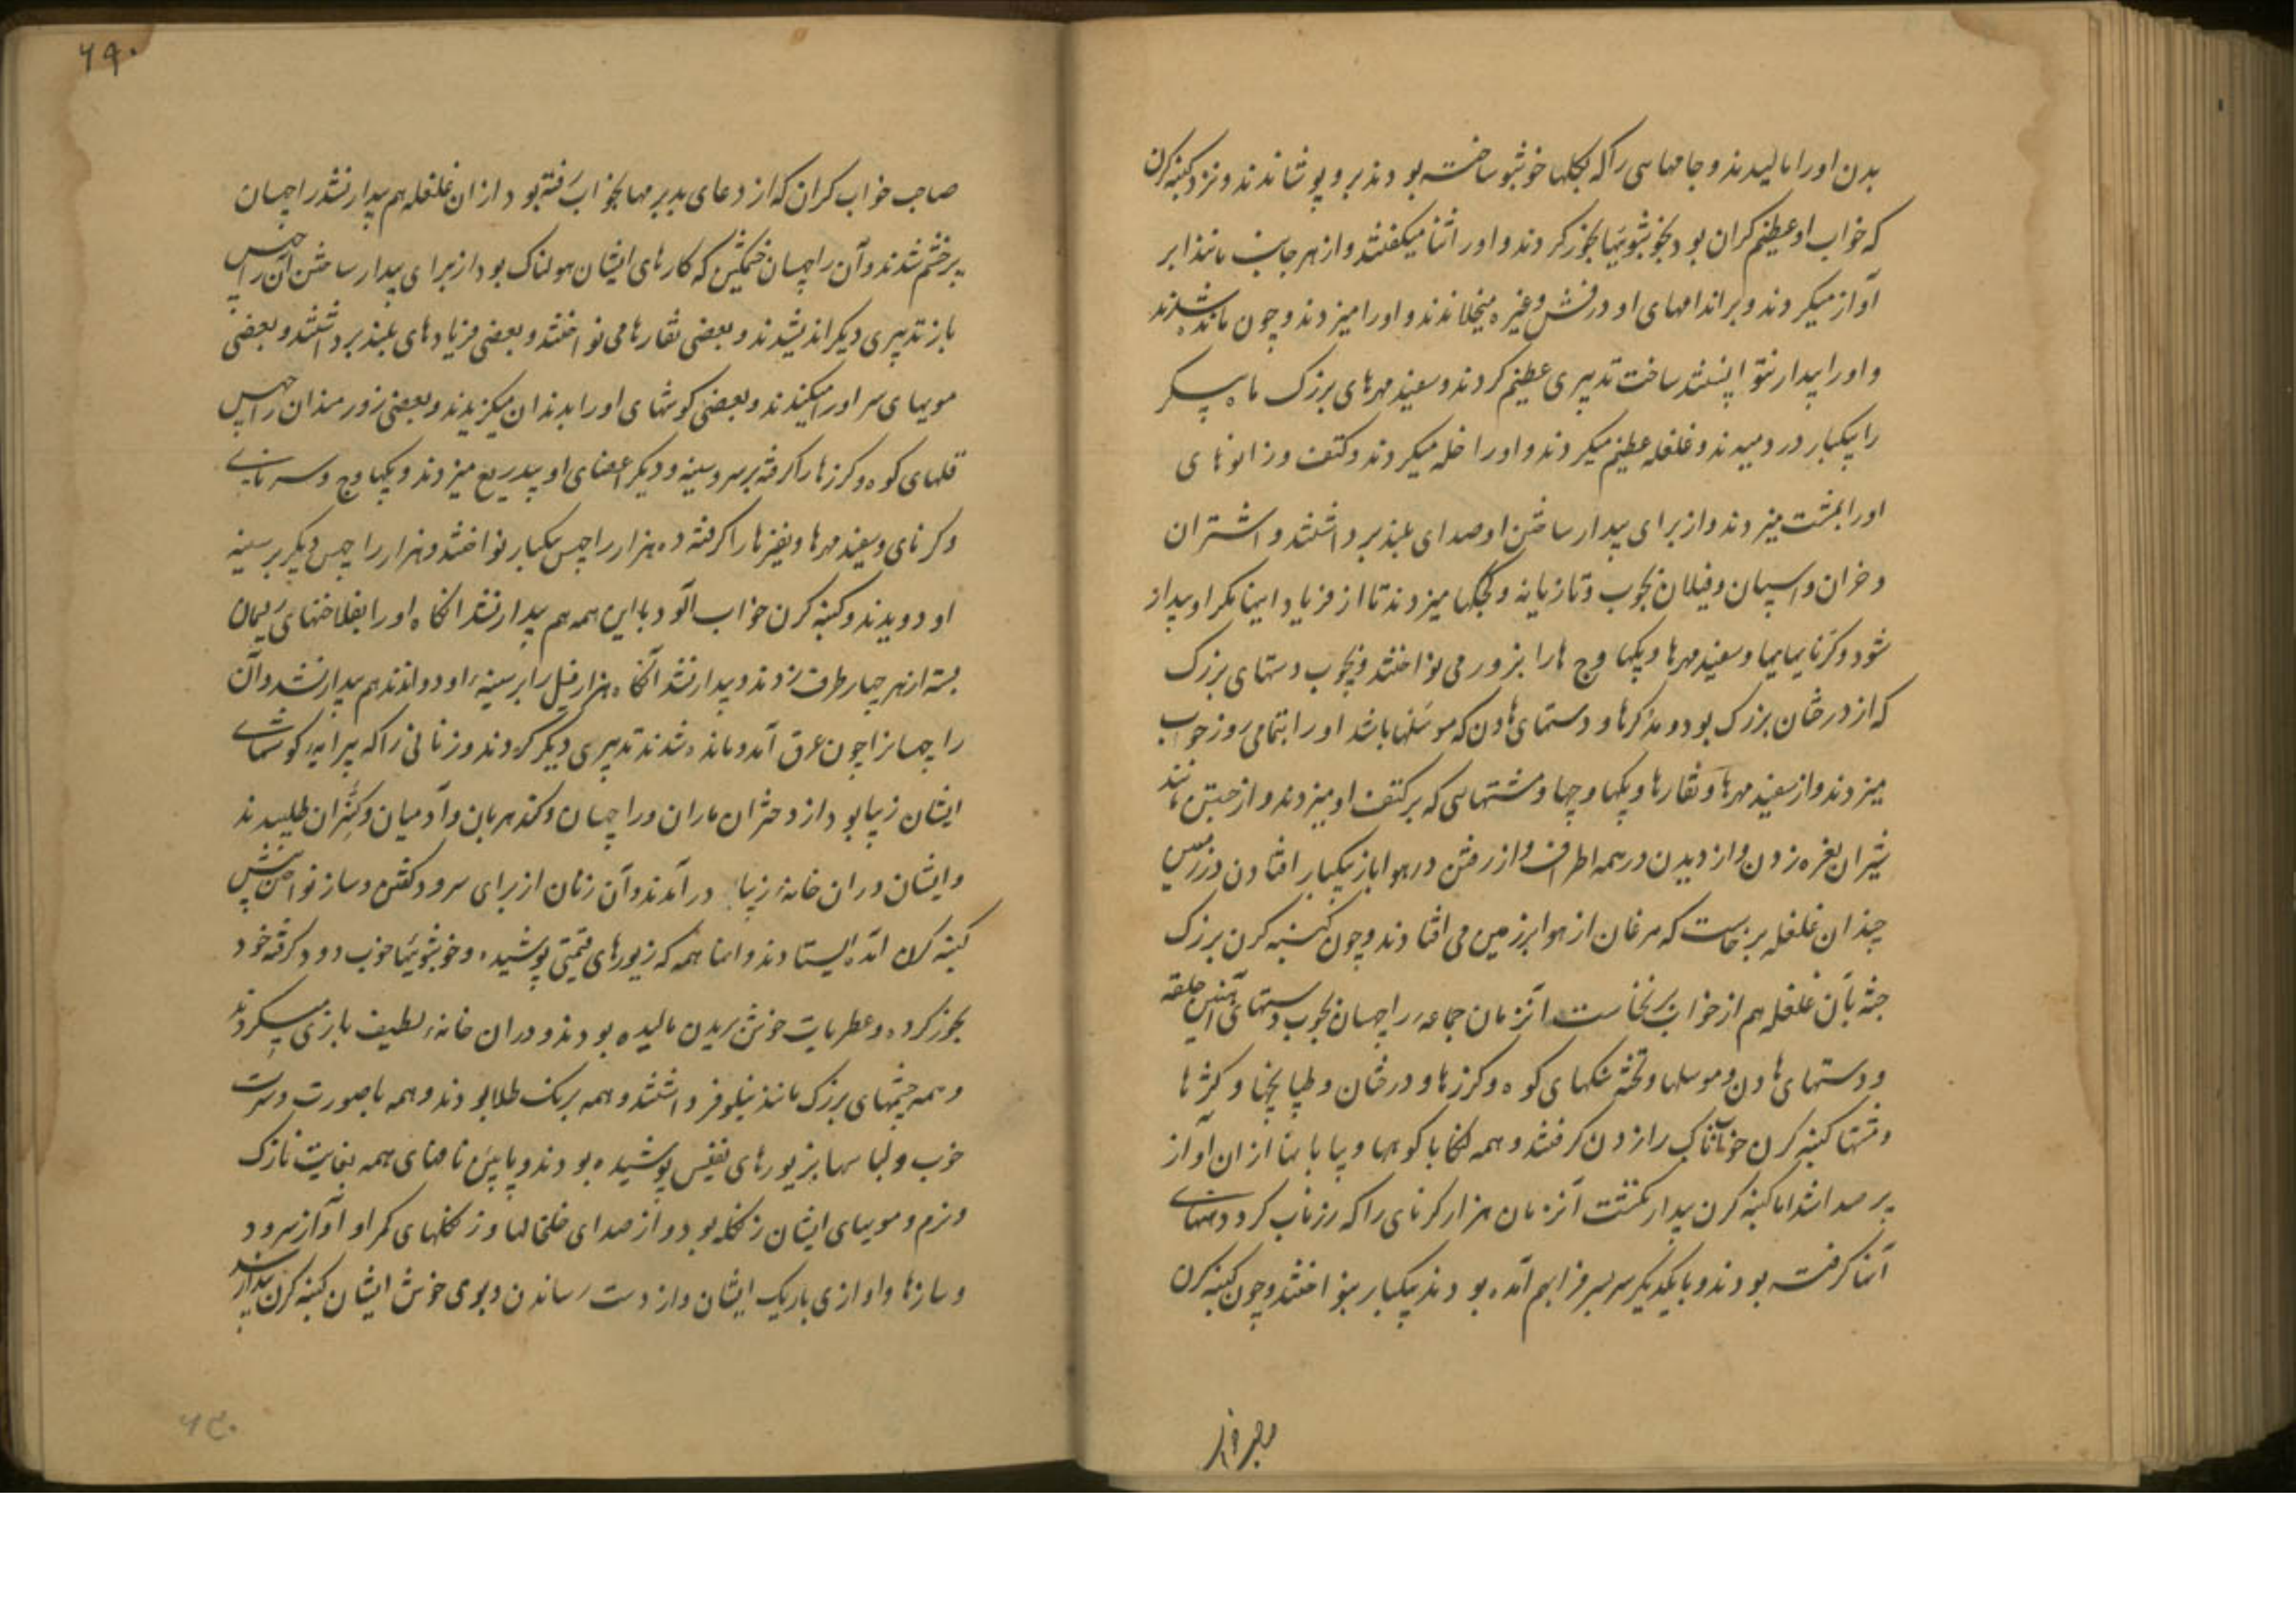 بدن اورا مالیدند و جامهای را که بگلها خوشبو ساخته بودند برو پوشاندند و نزد کنبه کرن
که خواب او عظیم کران بود بخوشبوئیها بخور کردند و اورا ثنا میکفتند و از هر جانب مانند ابر
آواز میکردند و بر اندامهای او درفش وغیره میخلاندند و اورا میزدند و چون مانده شدند
و اورا بیدار نتوانستند ساخت تدبیری عظیم کردند و سفید مهرهای بزرک ماه پیکر
را یکبار در دمیدند و غلغله عظیم میکردند و اورا خله میکردند و کتف و زانوهای
اورا بمشت میزدند و از برای بیدار ساختن او صدای بلند برداشتند و اشتران
و خران و اسپان و فیلان بچوب و تازیانه و کجکها میزدند تا از فریاد اینها مکر او بیدار
شود و کرنا یها و سفید مهرها و پکهاوج هارا بزور می نواختند و بچوب دستهای بزرک
که از درختان بزرک بود و مدکرها و دستهای هاون که موسلها باشد اورا بتمامی زور خوب
میزدند و از سفید مهرها و نقارها و پکهاوجها و مشتهای که بر کتف او میزدند و از جستن مانند
شیران نعره زدن و از دیدن در همه اطراف و از رفتن در هوا باز یکبار افتادن در زمین
چندان غلغله برخاست که مرغان از هوا بر زمین می افتادند و چون کنبه کرن بزرک
جثه بآن غلغله هم از خواب برنخاست آنزمان جماعه راچهسان بچوب دستهای آهنین حلقه
و دستهای هاون و موسلها و تخته سنکهای کوه و کرزها و درختان و طپانچها و کرها
و مشتها کنبه کرن خوابناک را زدن کرفتند و همه لنکا با کوهها و بیابانها ازان آواز
پر صدا شد اما کنبه کرن بیدار نکشت آنزمان هزار کرنای را که زرناب کرد دستهای
آنها کرفته بودند و با یکدیکر سر بسر فراهم آمده بودند یکبار بنواختند و چون کنبه کرن
۶۹۰
صاحب خواب کران که از دعای بد برمها بخواب رفته بود ازان غلغله هم بیدار نشد راچهسان
پر خشم شدند و آن راچهسان خشمکین که کارهای ایشان هولناک بود از برای بیدار ساختن آن راچهس
باز تدبیری دیکر اندیشیدند و بعضی نقارها می نواختند و بعضی فریادهای بلند برداشتند و بعضی
مویهای سر اورا میکندند و بعضی کوشهای اورا بدندان میکزیدند و بعضی زورمندان راچهس
قلهای کوه و کرزها را کرفته بر سر و سینه و دیکر اعضای او بیدریغ میزدند و پکهاوج و سرنای
و کرنای و سفید مهرها و نفیرها را کرفته ده هزار راچهس یکبار نواختند و هزار راچهس دیکر بر سینه
او دویدند و کنبه کرن خواب آلود با این همه هم بیدار نشد انکاه اورا بفلاخنهای ریسمان
بسته از هر چهار طرف زدند و بیدار نشد آنکاه هزار فیل را بر سینه او دواندند هم بیدار نشد و آن
راچهسانرا چون عرق آمد و مانده شدند تدبیری دیکر کردند و زنانی را که پیرایه کوشهای
ایشان زیبا بود از دختران ماران و راچهسان و کندهربان و آدمیان و کنران طلبیدند
و ایشان دران خانه زیبا در آمدند و آن زنان از برای سرود کفتن و ساز نواختن پیش
کنبه کرن آمده ایستادند و اینها همه که زیورهای قیمتی پوشیده و خوشبوئیها خوب دود کرفته خود
بخور کرده و عطریات خوش بر بدن مالیده بودند و دران خانه لطیف بازی میکردند
و همه چشمهای بزرک مانند نیلوفر داشتند و همه برنک طلا بودند و همه با صورت و سیرت
خوب و لباسها بزیورهای نفیس پوشیده بودند و پاپش ناخنای همه بغایت نازک
و نرم و موبیای ایشان زنکله بود و از صدای خلخالها و زنکلهای کمر او آواز سرود
و سازها و آوازی باریک ایشان و از دست رساندن و بوی خوش ایشان کنبه کرن بیدار شد
۶۳۰